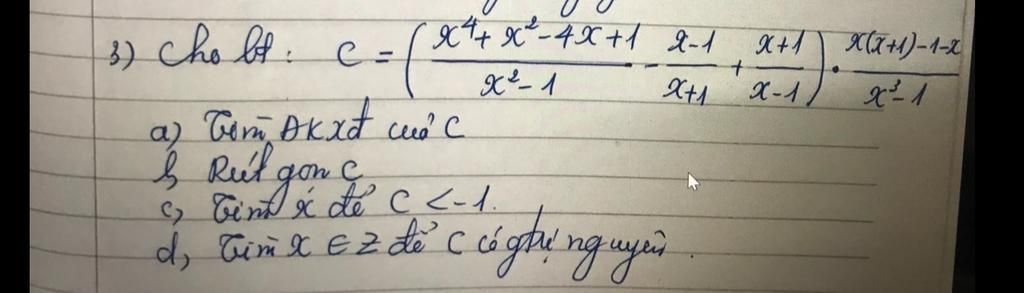 3) Cho bt : C = ( (x⁴ + x² - 4x + 1)/(x² - 1) - (x-1)/(x+1) + (x+1)/(x-1) ) . (x(x+1)-1-x)/(x³-1)
a) Tìm ĐKXĐ của C
b, Rút gọn C
c, Tìm x để C < -1.
d, Tìm x ∈ Z để C có gtrị nguyên.